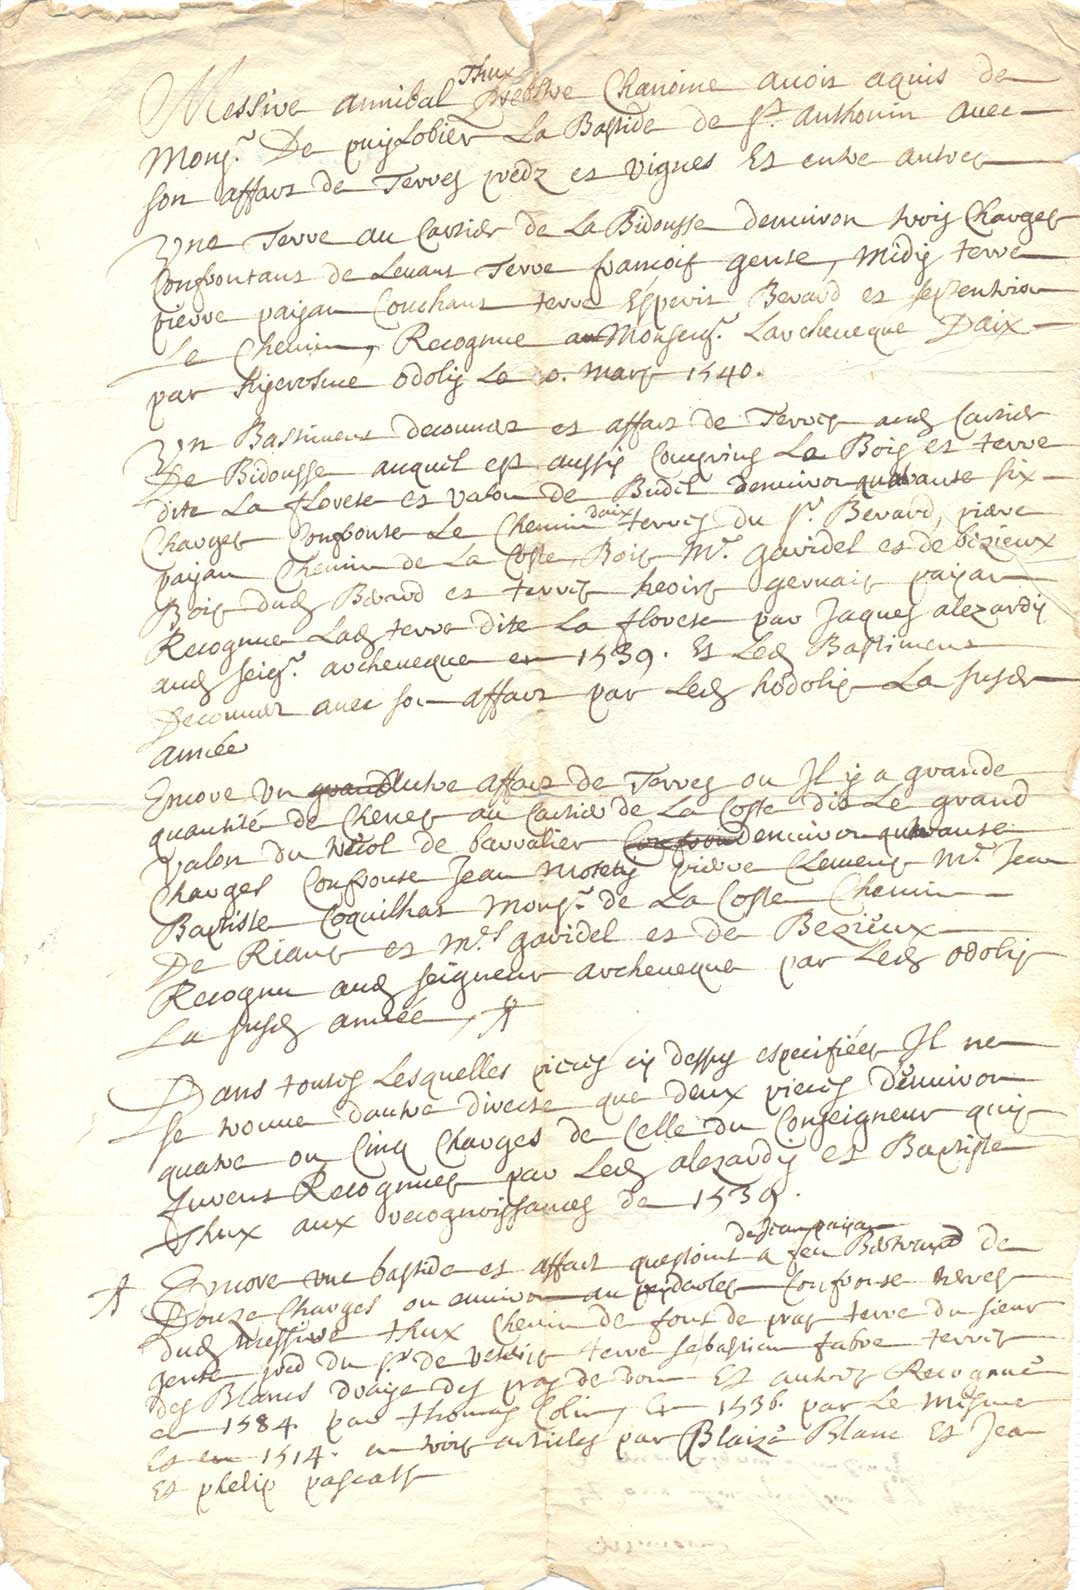 Thux
Messire annibal prebtre Chanoine avoir aquis de
Monsr. De puylobier La Bastide de St. anthonin avec
son affar de Terres predz et vignes Et entre autres
Une Terre au Cartier de La Bidousse denuiron trois Charges
Confrontant de Levant Terre francois gente, Midy terre
pierre paijan Couchant terre Esperit Berard et septentrion
Le Chemin, Recognue a Monseigr. Larcheveque Daix
par hyerosme odoly Le 10. Mars 1540.
Un Bastiment decouuert et affar de Terres aud Cartier
De Bidousse auquel est aussy Comprins Le Bois et terre
dite La florete et valon de Budel denuiron quarante six
Charges Confronte Le Chemin daix terres du sr. Berard, pierre
paijan Chemin de La Coste, Bois Mr. gavidel et de bezieux
Bois dud Berard et terres heoirs gervais paijan
Recognue Lad terre dite La florete par Jaques alezardy
aud seigr. archeveque en 1539. Et Led Bastiment
Decouuert avec son affar par Led hodoly La susd
année
Encore Un grand Autre affar de Terres ou Il y a grande
quantité de Chenes au Cartier de La Coste dit Le grand
Valon du de barralier Confron denuiron quarante
Charges Confronte Jean Motety pierre Clement Mr. Jean
Baptiste Coquilhat Monsr. de La Coste Chemin
De Rians et Mrs gavidel et de Bezieux
Recognu aud seigneur archeveque par Led odoly
La susd année,
Dans toutes Lesquelles pieces cy dessus especifiées Il ne
se trouve dautre directe que deux pieces Denuiron
quatre ou Cinq Charges de Celle du Conseigneur quy
furent Recognues par Led alezardy et Baptiste
Thux aux recognoissances de 1539.
de Jean paijan
Encore une bastide et affar a feu Bertrand de
Douze Charges ou environ au Confronte terres
dud Messire thux Chemin de font de terre du sieur
gente pred du sr de terre sebastien fabre terres
des Blancs des de Et autres Recognue
en 1584. par thomas Colin, En 1536. par Le Mesme
Et en 1514. en trois articles par Blaize Blanc Et Jean
Et phelip pascals